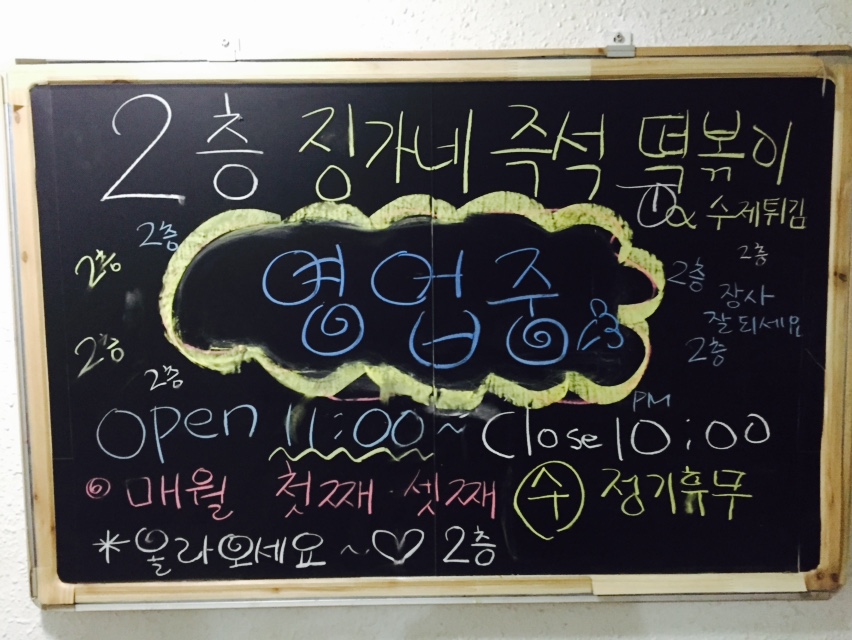 2층 징가네 즉석 떡볶이
& 수제튀김
2층
2층
2층
2층
영업중
2층
2층
장사
잘되세요
2층
Open 11:00 ~ Close 10:00 PM
매월 첫째 셋째 수 정기휴무
*올라오세요 ~ ♡ 2층